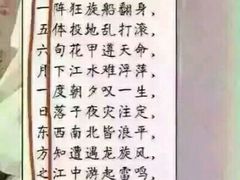 一阵狂旋船翻身，
五体投地乱打滚，
六旬花甲遵天命，
月下江水难浮萍，
一度朝夕叹一生，
日落子夜灾注定，
东西南北皆浪平，
方知遭遇龙旋风，
之江中游起雷鸣，